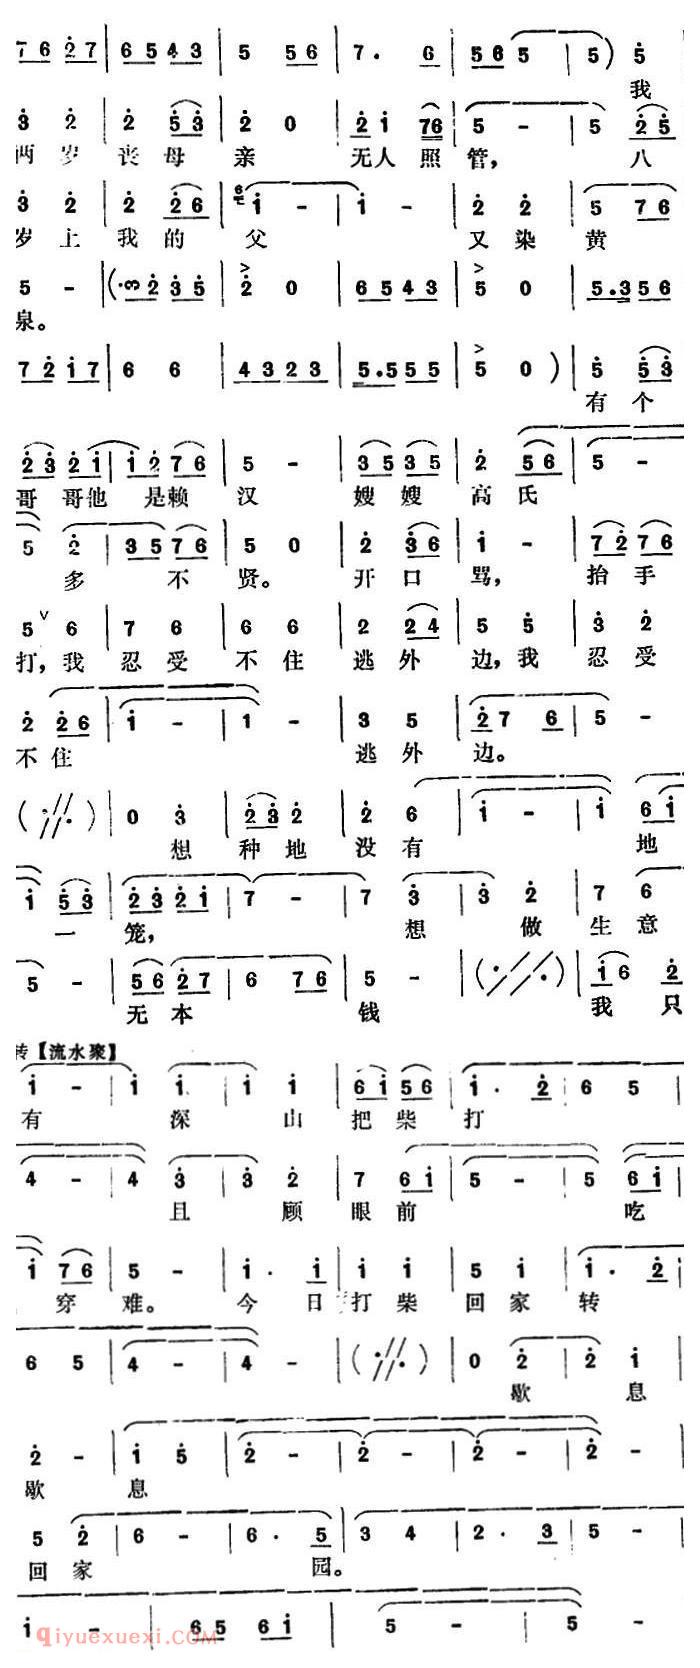 7 6 2 7 | 6 5 4 3 | 5 5 6 | 7 . 6 | 5 6 5 | 5 ) 5
我
3 2 | 2 5 3 | 2 0 | 2 1 7 6 | 5 - | 5 2 5
两岁 丧母 亲 无人照 管， 八
3 2 | 2 2 6 | 1 - | 1 - | 2 2 | 5 7 6
岁上 我的 父 又染 黄
5 - | ( 2 3 5 | 2 0 | 6 5 4 3 | 5 0 | 5 . 3 5 6
泉。
7 2 1 7 | 6 6 | 4 3 2 3 | 5 . 5 5 5 | 5 0 ) | 5 5 3
有个
2 3 2 1 | 1 2 7 6 | 5 - | 3 5 3 5 | 2 5 6 | 5 -
哥哥他 是赖 汉 嫂嫂 高氏
5 2 | 3 5 7 6 | 5 0 | 2 3 6 | 1 - | 7 2 7 6
多 不 贤。 开口 骂， 抬手
5 6 | 7 6 | 6 6 | 2 2 4 | 5 5 | 3 2
打，我 忍受 不住 逃外 边，我 忍受
2 2 6 | 1 - | 1 - | 3 5 | 2 7 6 | 5 -
不住 逃外 边。
( ) | 0 3 | 2 3 2 | 2 6 | 1 - | 1 6 1
想 种地 没有 地
1 5 3 | 2 3 2 1 | 7 - | 7 3 | 3 2 | 7 6
一 笼， 想 做 生意
5 - | 5 6 2 7 | 6 7 6 | 5 - | ( ) | 1 6 2
无本 钱 我只
转【流水聚】
1 - | 1 1 | 1 1 | 6 1 5 6 | 1 . 2 | 6 5 |
有 深 山 把柴 打
4 - | 4 3 | 3 2 | 7 6 1 | 5 - | 5 6 1
且 顾 眼前 吃
1 7 6 | 5 - | 1 . 1 | 1 1 | 5 1 | 1 . 2
穿 难。 今 日 打柴 回家 转
6 5 | 4 - | 4 - | ( ) | 0 2 | 2 1
歇 息
2 - | 1 5 | 2 - | 2 - | 2 - | 2 -
歇 息
5 2 | 6 - | 6 . 5 | 3 4 | 2 . 3 | 5 -
回家 园。
1 - | 6 5 6 1 | 5 - | 5 -
qiyuexuexi.COM